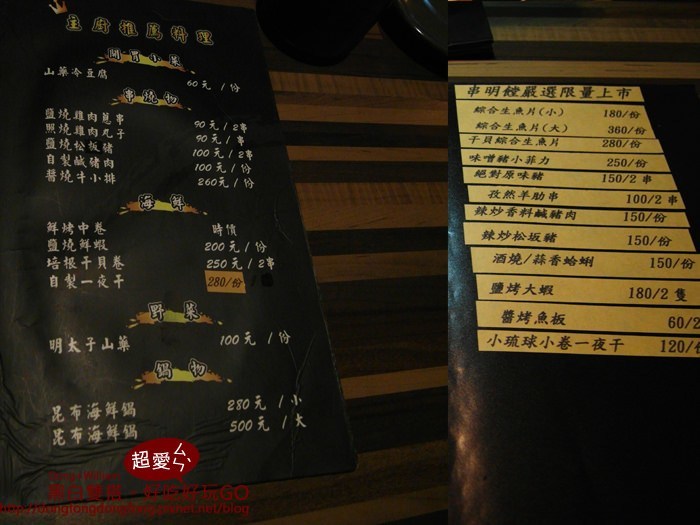 主廚推薦料理
開胃小菜
山藥冷豆腐 60元 / 份
串燒物
鹽燒雞肉蔥串 90元 / 2串
照燒雞肉丸子 90元 / 串
鹽燒松板豬 100元 / 2串
自製鹹豬肉 100元 / 份
醬燒牛小排 260元 / 份
海鮮
鮮烤中卷 時價
鹽燒鮮蝦 200元 / 份
培根干貝卷 250元 / 2串
自製一夜干 280/份
野菜
明太子山藥 100元 / 份
鍋物
昆布海鮮鍋 280元 / 小
昆布海鮮鍋 500元 / 大
超愛ㄙㄣ
串明鏜嚴選限量上市
綜合生魚片(小) 180/份
綜合生魚片(大) 360/份
干貝綜合生魚片 280/份
味噌豬小菲力 250/份
絕對原味豬 150/2串
孜然羊肋串 100/2串
辣炒香料鹹豬肉 150/份
辣炒松坂豬 150/份
酒燒/蒜香蛤蜊 150/份
鹽烤大蝦 180/2隻
醬烤魚板 60/2
小琉球小卷一夜干 120/份